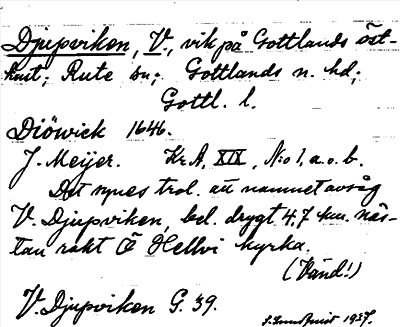 Djupviken, V., vik på Gottlands öst-
kust; Rute sn; Gottlands n. hd;
Gottl. l.
Diöwick 1646.
J. Meijer. Kr.A, XIX, No 1, a.o.b.
Det synes trol. att namnet avsåg
V. Djupviken, bel. drygt 4,7 km. näs-
tan rakt Ö Hellvi kyrka.
(Vänd!)
V. Djupviken G. 39.
1937.